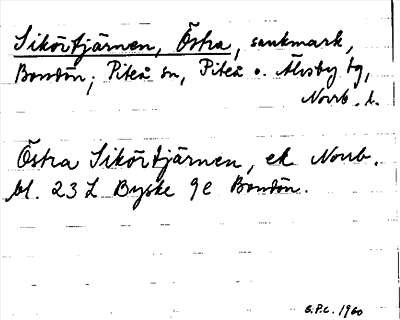 Sikörtjärnen, Östra, sankmark,
Bondön; Piteå sn, Piteå o. Älvsby tg,
Norrb. l.
Östra Sikörtjärnen, ek Norrb.
bl. 23 L Byske 9e Bondön.
G.P.C. 1960